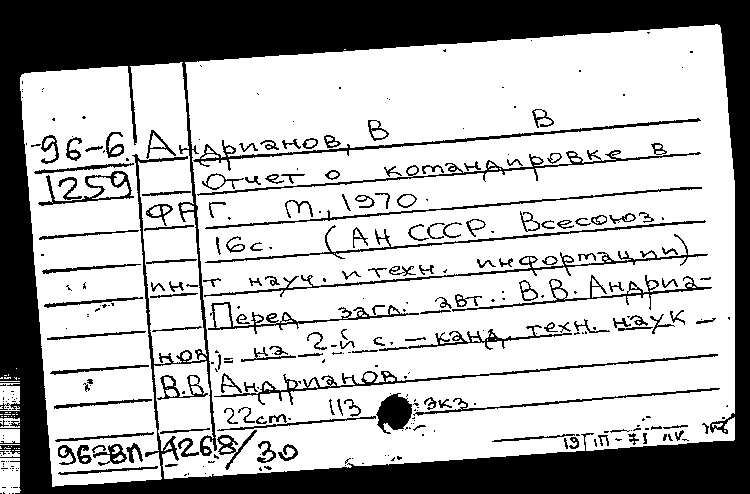 96-6 Андрианов, В В
1259 Отчет о командировке в
ФРГ. М., 1970.
16с. (АН СССР. Всесоюз.
ин-т науч. и техн. информации)
Перед загл. авт.: В.В. Андриа-
нов; на 2-й с. — канд. техн. наук —
В.В. Андрианов.
22см. 113 экз.
19/III-71